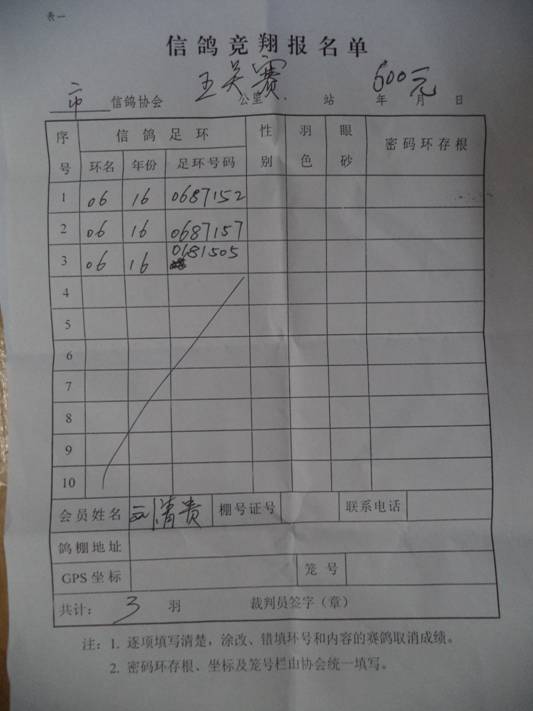 表一
信鸽竞翔报名单
市 信鸽协会 公里 站 年 月 日 600元
序号 信鸽足环 性别 羽色 眼砂 密码环存根
环名 年份 足环号码
1 06 16 0687152
2 06 16 0687157
3 06 16 0681505
4
5
6
7
8
9
10
会员姓名 刘清贵 棚号证号 联系电话
鸽棚地址
GPS 坐标 笼号
共计: 3 羽 裁判员签字（章）
注：1. 逐项填写清楚，涂改、错填环号和内容的赛鸽取消成绩。
2. 密码环存根、坐标及笼号栏由协会统一填写。